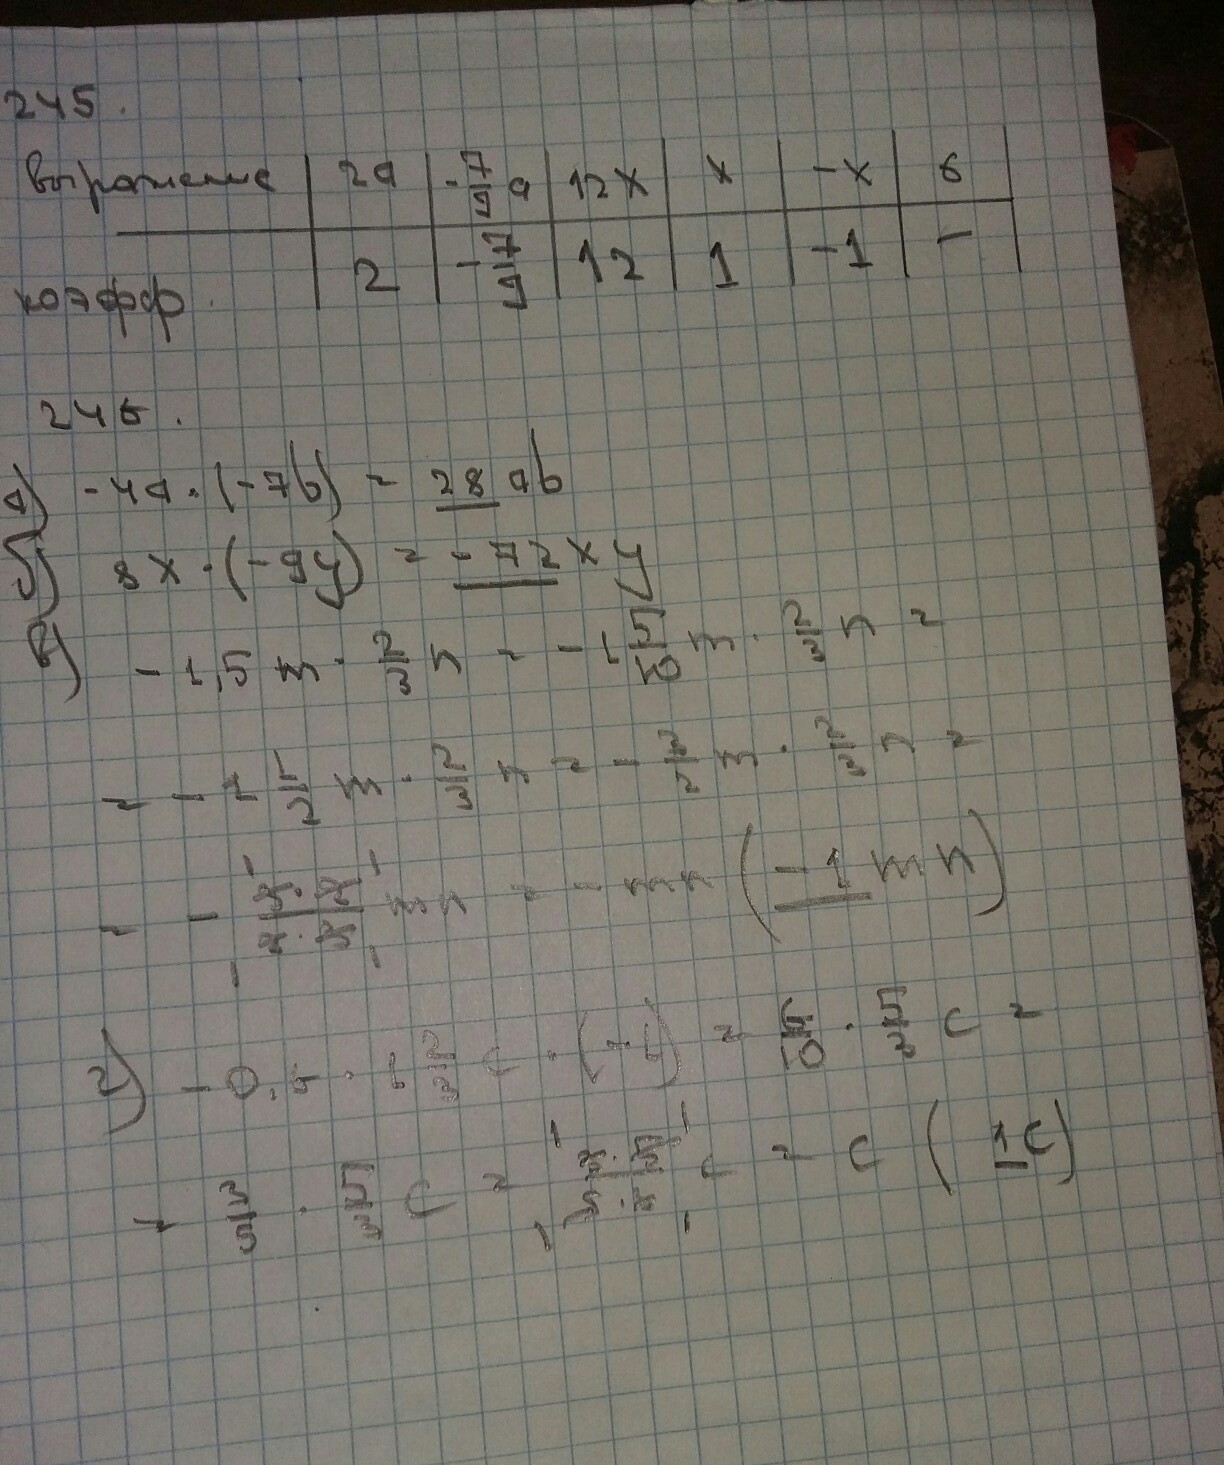 245.
выражение | 2a | -7/9 a | 12x | x | -x | 6
коэфф. | 2 | -7/9 | 12 | 1 | -1 | –
246.
а) -4a·(-7b) = 28 ab
б) 8x·(-9y) = -72xy
в) -1,5m · 2/3 n = -1 5/10 m · 2/3 n =
= -1 1/2 m · 2/3 n = - 3/2 m · 2/3 n =
= - 3·2/2·3 mn = -mn (-1mn)
г) -0,6 · 1 2/3 c · (-1) = 6/10 · 5/3 c =
= 3/5 · 5/3 c = 3·5/5·3 c = c (1c)